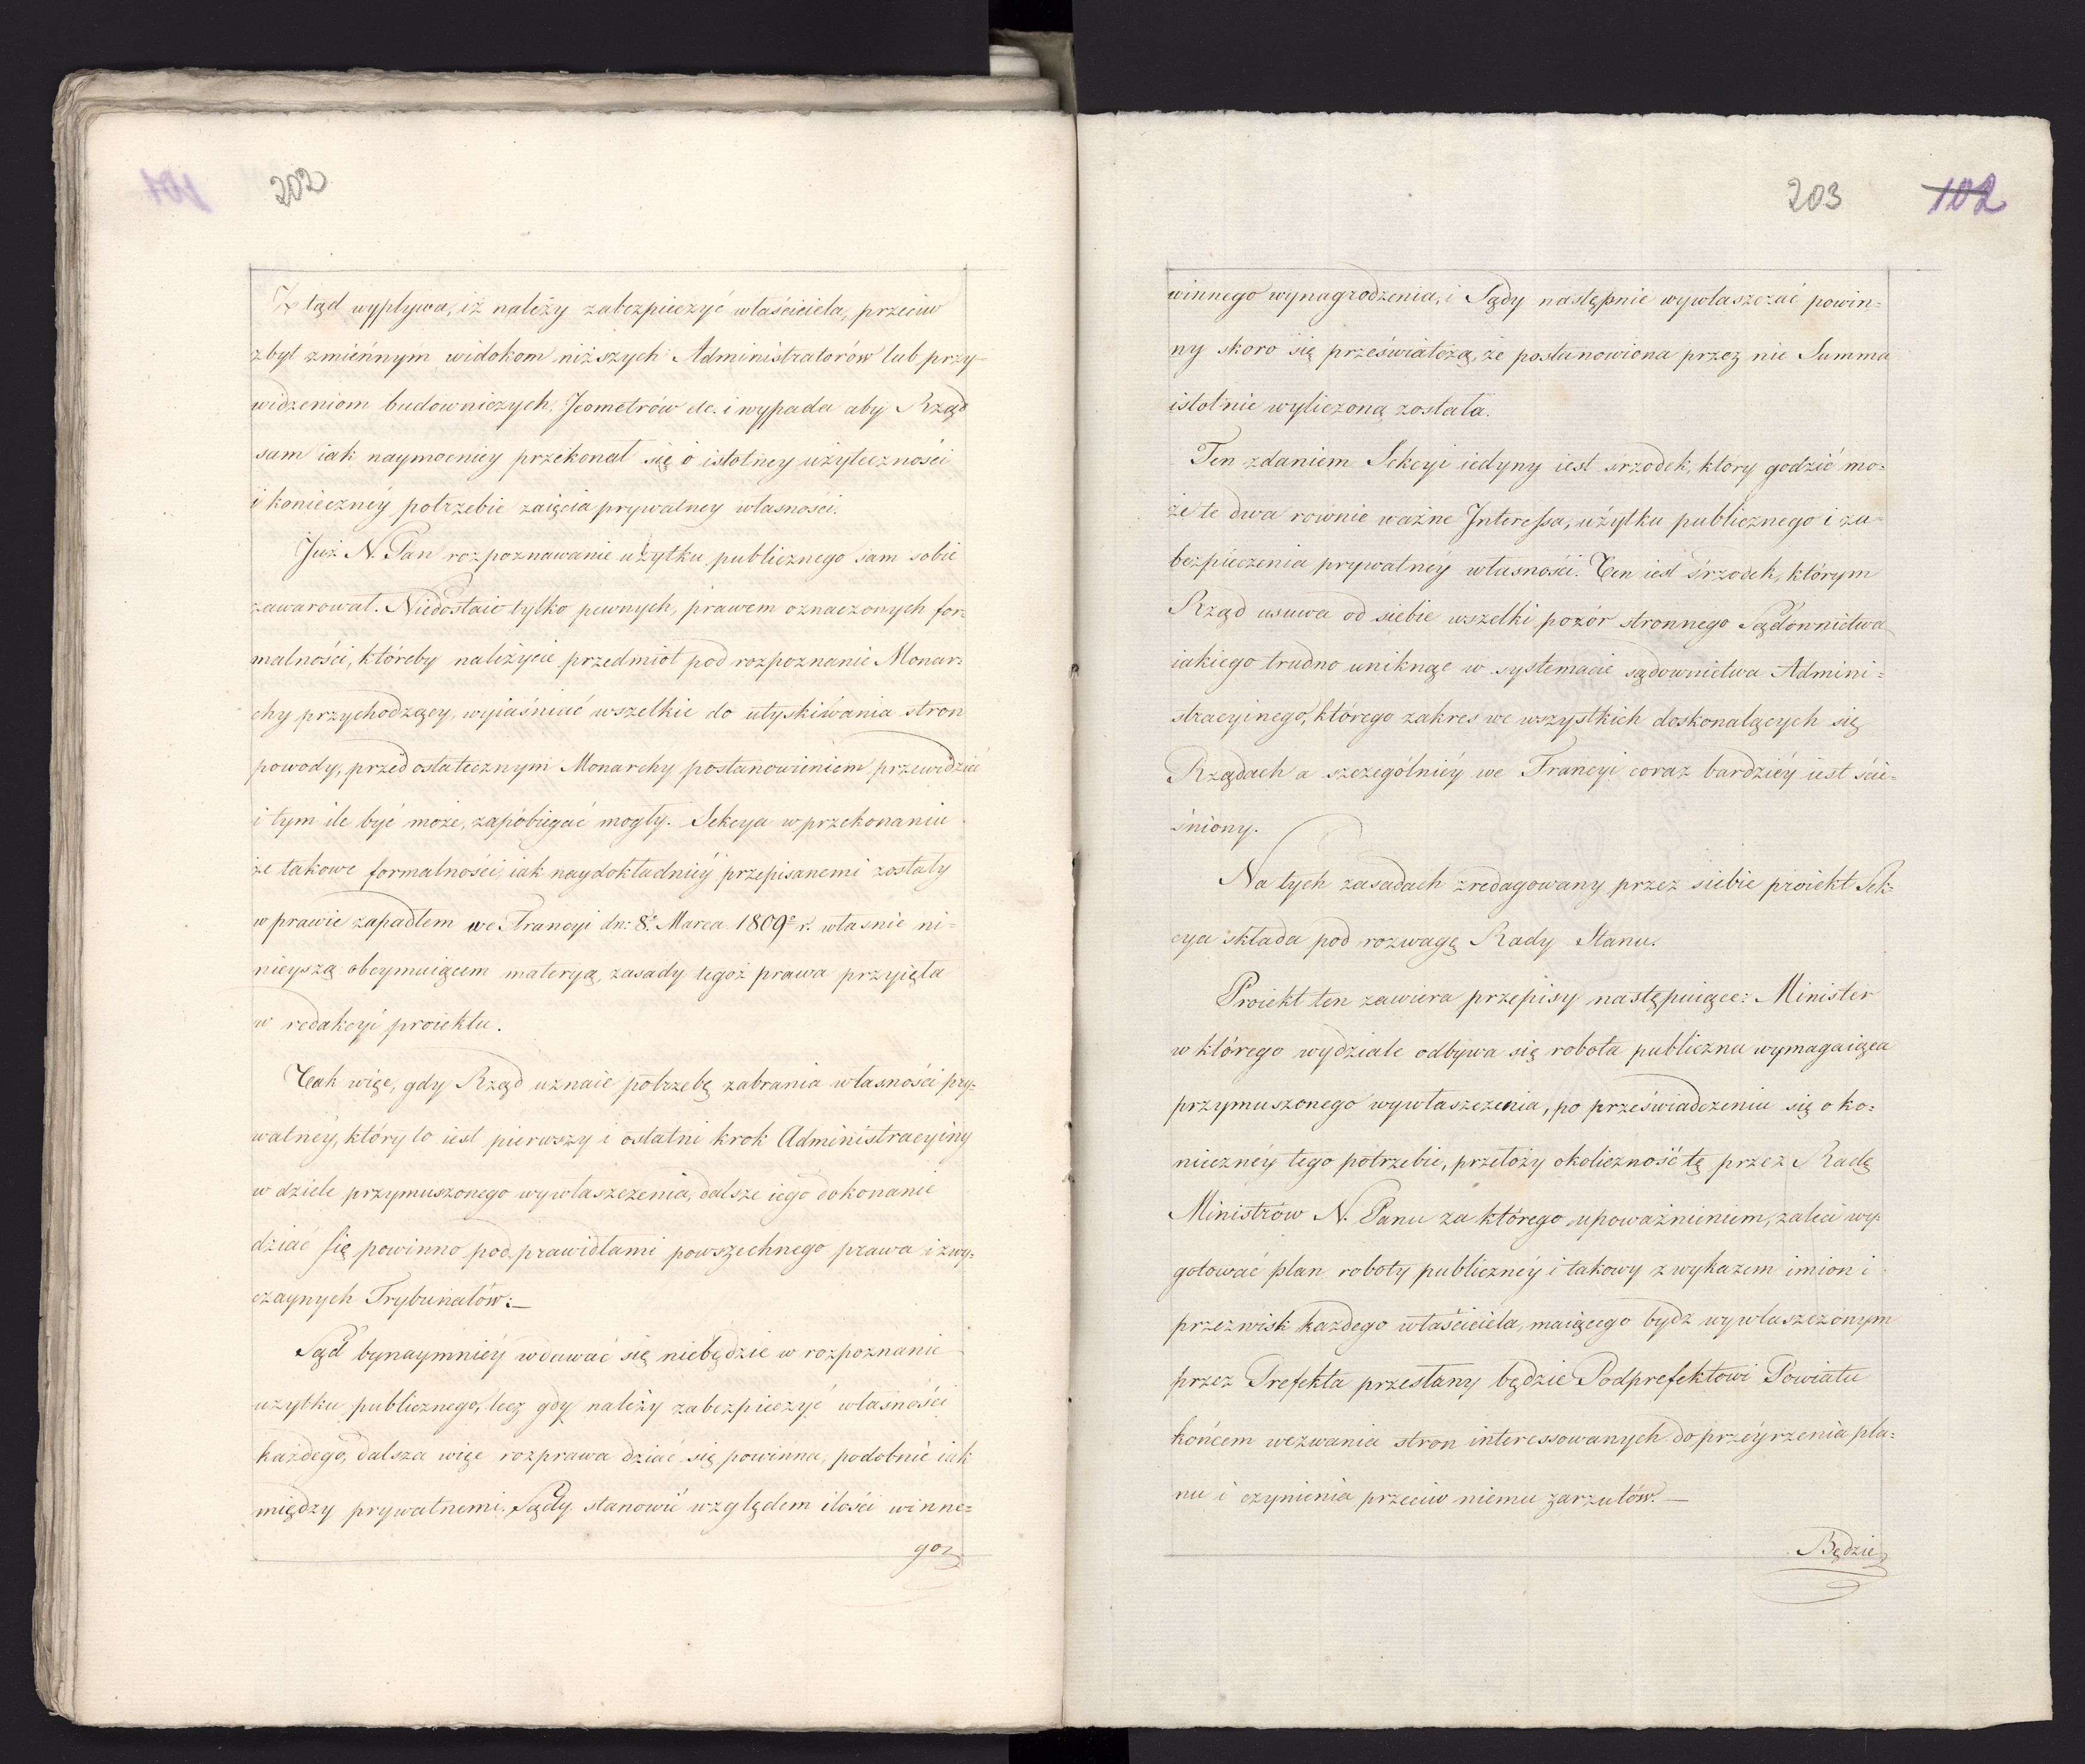 202
Ztąd wypływa, iż należy zabezpieczyć właściciela, przeciw
zbyt zmiennym widokom niższych Administratorów lub przy-
widzeniom budowniczych, Jeometrów etc. i wypada aby Rząd
sam iak naymocniey przekonał się o istotney użyteczności
i konieczney potrzebie zaięcia prywatney własności.
Już N. Pan rozpoznawanie użytku publicznego sam sobie
zawarował. Niedostaie tylko pewnych, prawem oznaczonych for=
malności, któreby należycie przedmiot pod rozpoznanie Monar=
chy przychodzący, wyiaśniać wszelkie do utyskiwania stron
powody, przed ostatecznym Monarchy postanowieniem przewidzieć
i tym ile być może, zapóbiegać mogły. Sekcya w przekonaniu
że takowe formalności iak naydokładniéy przepisanemi zostały
w prawie zapadłem we Francyi dn: 8º Marca 1809º r. własnie ni=
nieyszą obeymuiącem materyą, zasady tegoż prawa przyięła
w redakcyi proiektu.
Tak więc, gdy Rząd uznaie potrzebę zabrania własności pry=
watnéy, który to iest pierwszy i ostatni krok Administracyiny
w dziele przymuszonego wywłaszczenia, dalsze iego dokonanie
dziać się powinno pod prawidłami powszechnego prawa i zwy=
czaynych Trybunałów:—
Sąd bynaymniéy wdawać się niebędzie w rozpoznanie
użytku publicznego, lecz gdy należy zabezpieczyć własności
każdego, dalsza więc rozprawa dziać się powinna, podobnie iak
między prywatnemi. Sądy stanowić względem ilości winne=
go
203 102
winnego wynagrodzenia, i Sądy następnie wywłaszczać powin=
ny skoro się przeświatczą, że postanowiona przez nie Summa
istotnie wyliczoną została.
Ten zdaniem Sekcyi iedyny iest srzodek, który godzić mo=
że te dwa równie ważne Interessa, użytku publicznego i za=
bezpieczenia prywatnéy własności. Ten iest śrzodek, którym
Rząd usuwa od siebie wszelki pozór stronnego Sądownictwa
iakiego trudno uniknąc w systemacie sądownictwa Admini=
stracyinego, którego zakres we wszystkich doskonalących się
Rządach a szczególniéy we Francyi coraz bardziéy iest ście=
śniony.
Na tych zasadach zredagowany przez siebie proiekt Sek=
cya składa pod rozwagę Rady Stanu.
Proiekt ten zawiera przepisy następuiące: Minister
w którego wydziale odbywa się robota publiczna wymagaiąca
przymuszonego wywłaszczenia, po przeświadczeniu się o ko=
nieczney tego potrzebie, przełoży okoliczność tę przez Radę
Ministrów N. Panu za którego upoważnieniem, zaleci wy=
gotować plan roboty publicznéy i takowy z wykazem imion i
przezwisk każdego właściciela, maiącego bydz wywłaszczonym
przez Prefekta przesłany będzie Podprefektowi Powiatu
końcem wezwania stron interessowanych do przéyrzenia pla=
nu i czynienia przeciw niemu zarzutów.—
Będzie